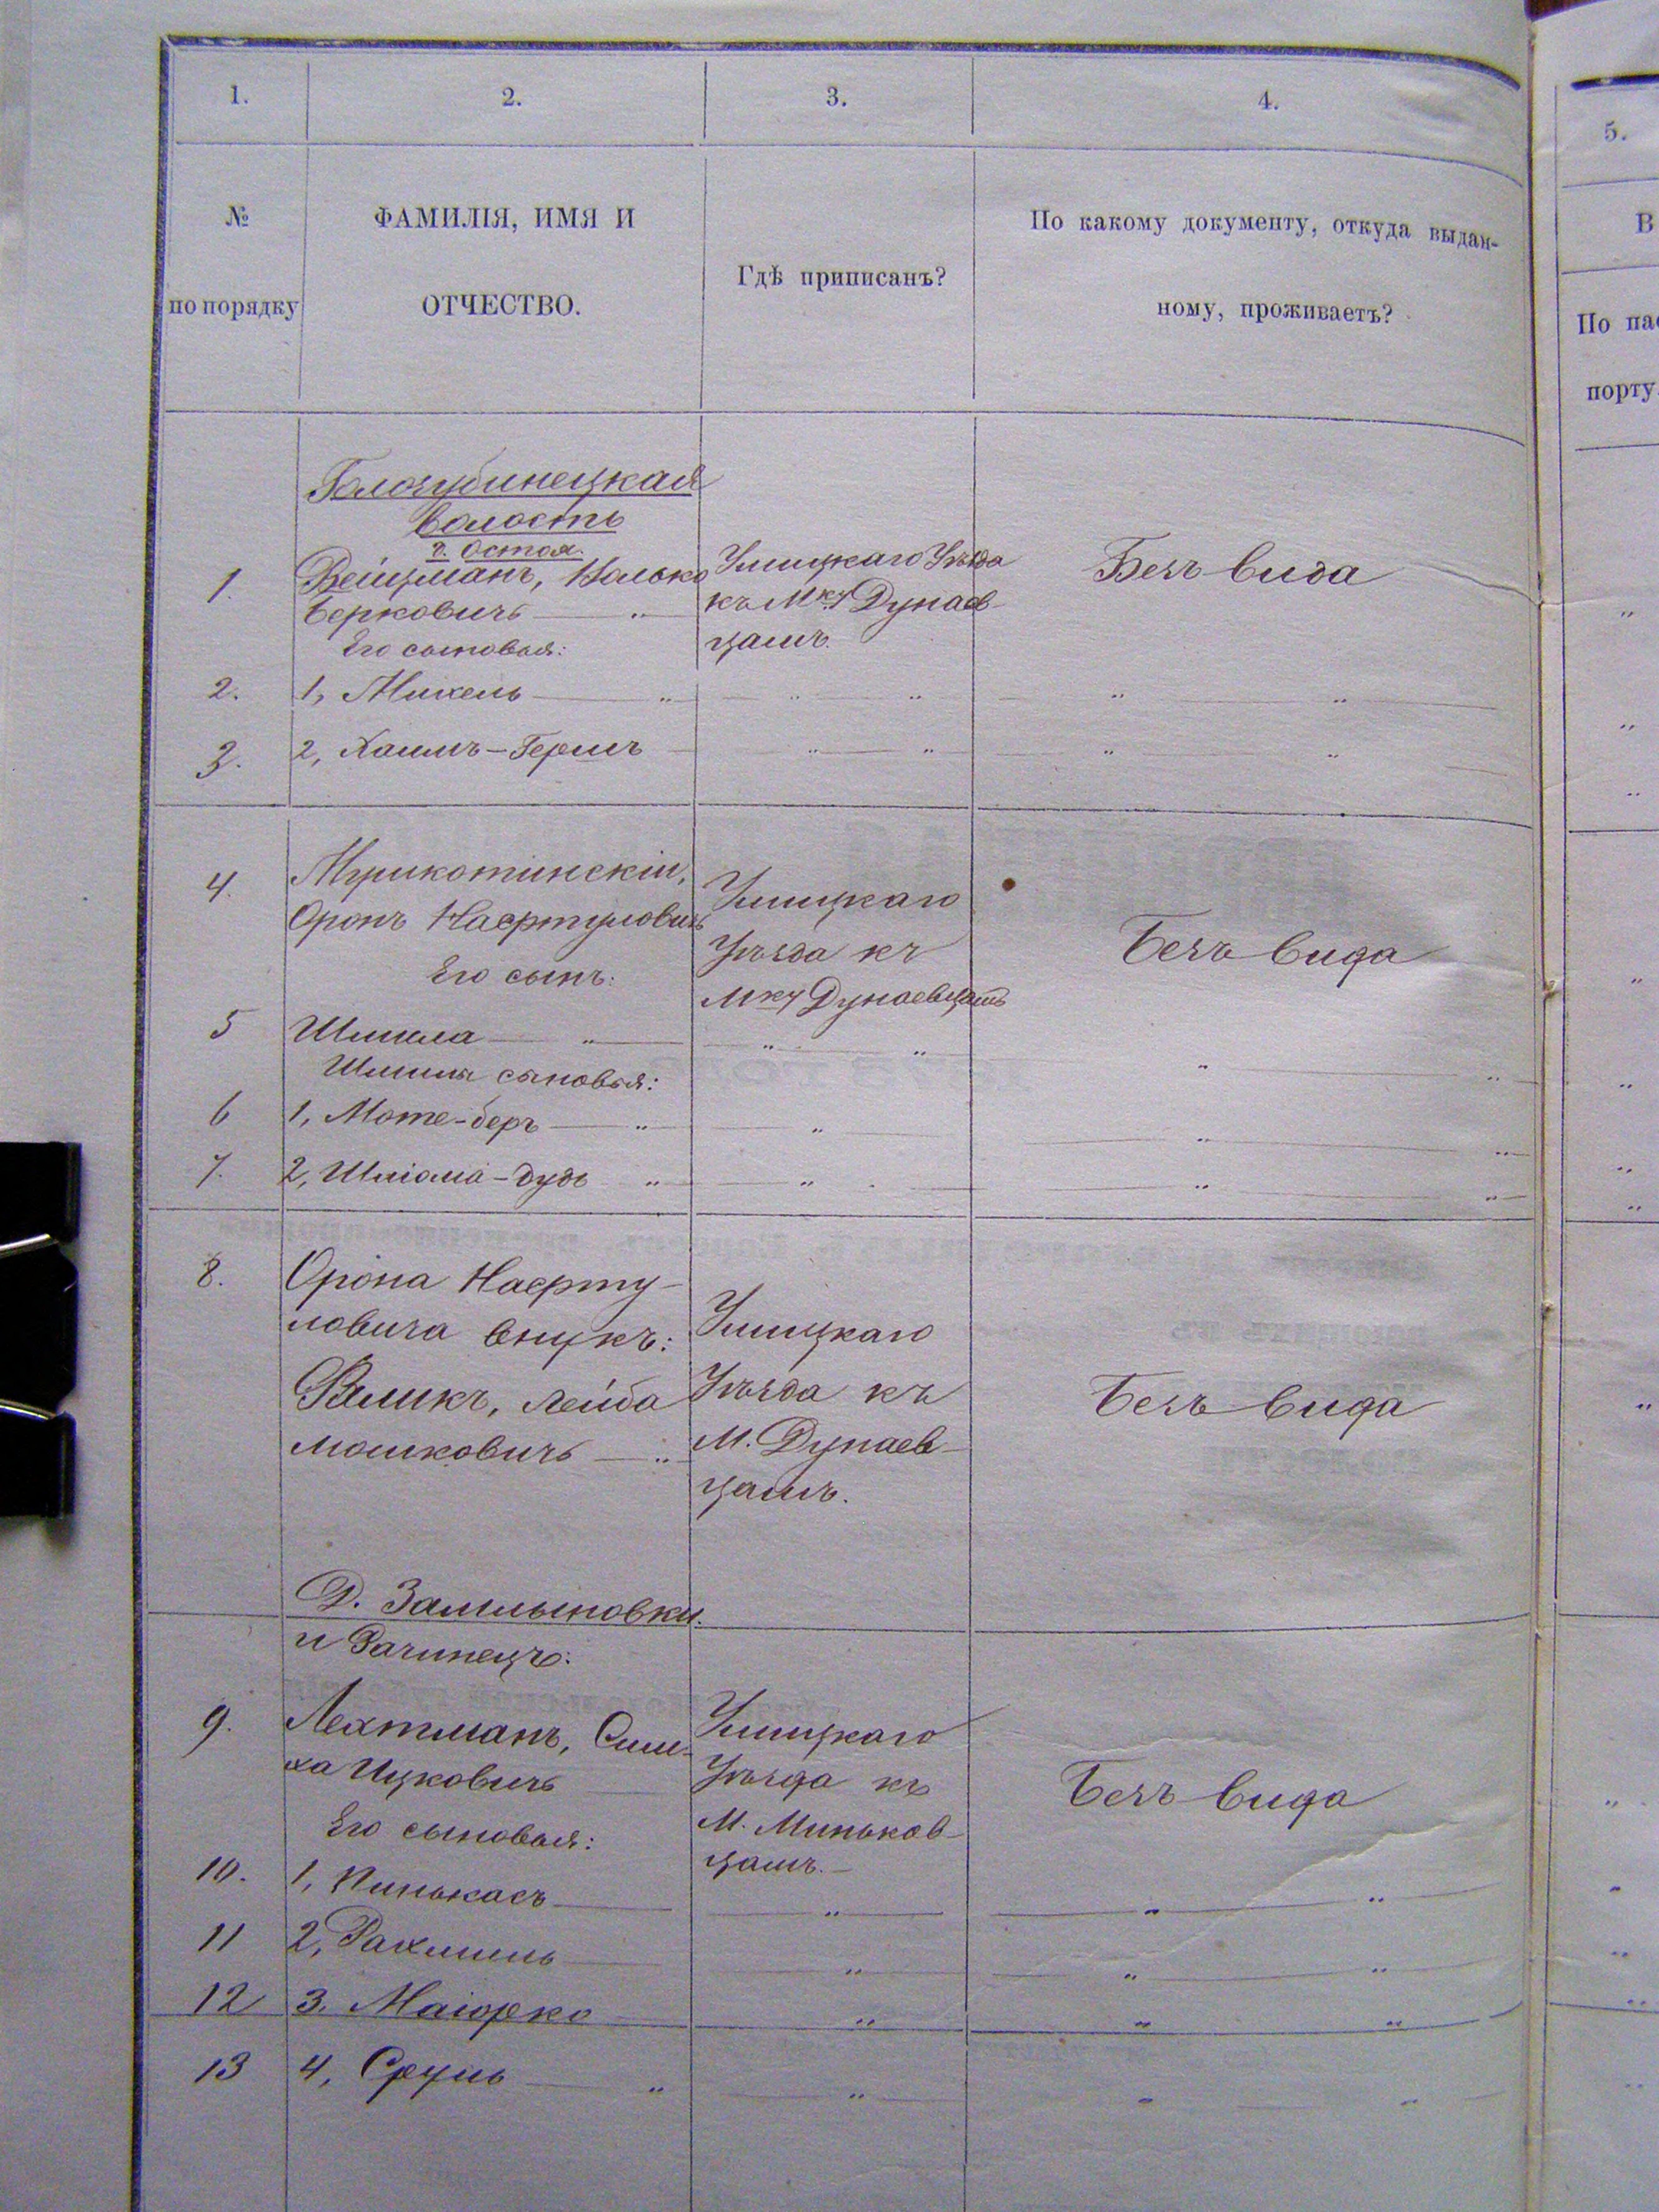 1. 2. 3. 4.
№ по порядку
ФАМИЛІЯ, ИМЯ И
ОТЧЕСТВО.
Гдѣ приписанъ?
По какому документу, откуда выдан-
ному, проживаетъ?
5.
В
По пас
порту
Голозубинецкая
волость
Вейцманъ,
Берковичъ — „
Его сыновья:
Ушицкаго Уѣзда
къ Мку Дунаев-
цамъ.
Безъ вида
1.
2. 1, Михель — „ „ „ „ „
3. 2, Хаимъ-Гершъ — „ „ „ „
4.
Оронъ Нафтуловичъ
Его сынъ:
Ушицкаго
Уѣзда къ
Мку Дунаевцамъ
Безъ вида
5 Шмила — „ „ „ „ „
Шмилы сыновья:
6 1, Моте-беръ — „ „ „ „
7. 2, Шліома-дудь „ „ „ „
8. Орона Нафту-
ловича внукъ:
Лейба
Мошковичъ — „
Ушицкаго
Уѣзда къ
М. Дунаев-
цамъ.
Безъ вида
Д. Замлыновки
и Рачинецъ:
9. Лехтманъ, Сим-
ха Ицковичъ
Его сыновья:
Ушицкаго
Уѣзда къ
М. Миньков-
цамъ. —
Безъ вида
10. 1, Пинькасъ — „ „ „
11 2, Рахмиль — „ „ „
12 3. Маіорко „ „ „
13 4, Сруль — „ „ „ „